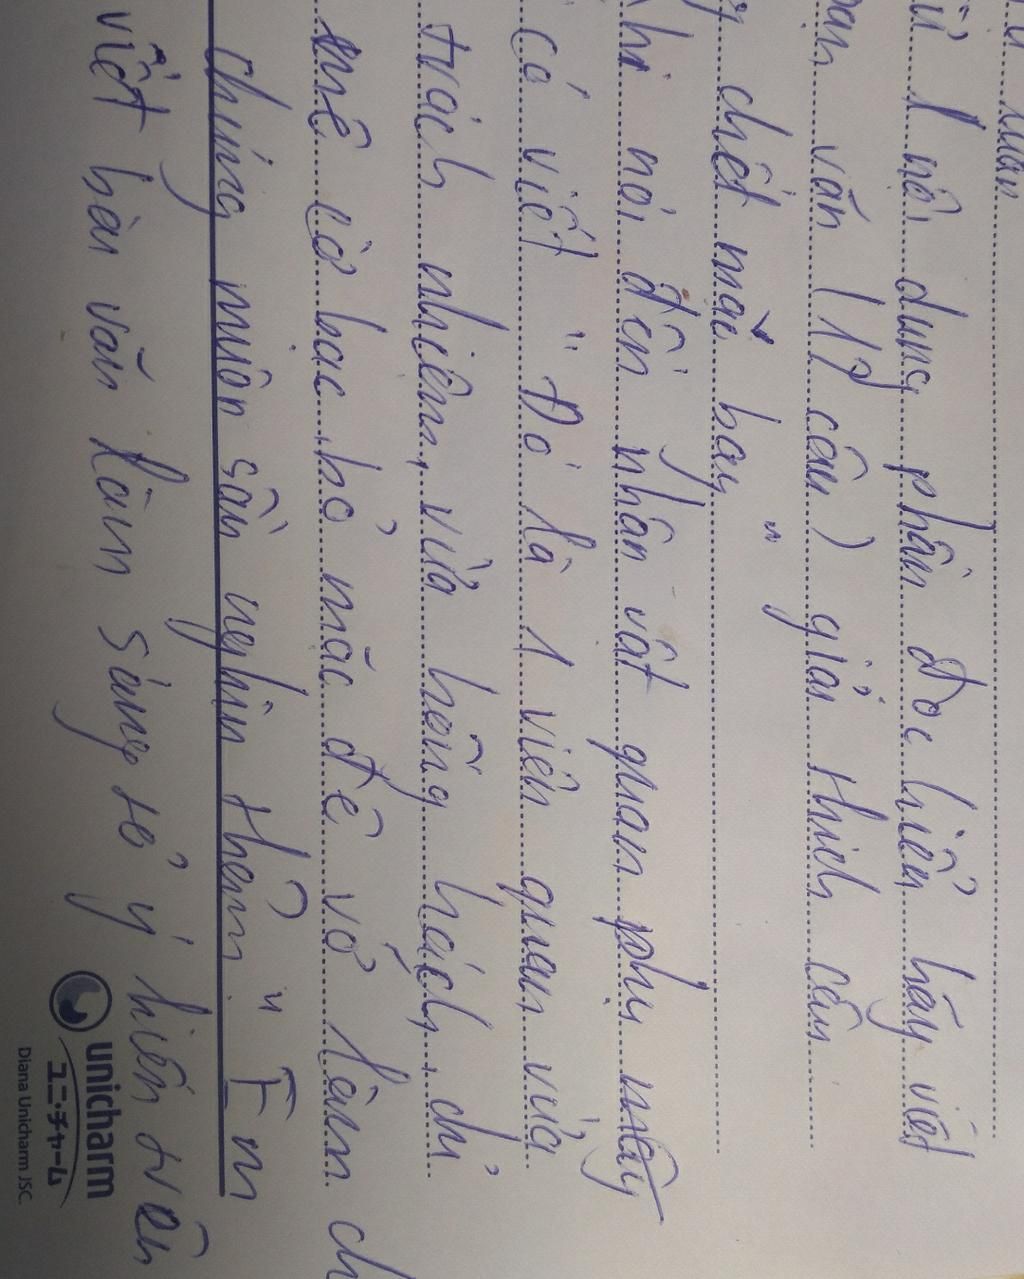 luận
từ 1 nội dung phần Đọc hiểu hãy viết
văn (12 câu) giải thích câu
chết mặc bay "
Khi nói đến nhân vật quan phụ mẫu
có viết " Đó là 1 viên quan vừa
trách nhiệm, vừa hống hách, chỉ
mê cờ bạc, bỏ mặc đê vỡ làm
chúng muôn sầu nghìn thêm " Em
viết bài văn làm sáng tỏ ý kiến trên
unicharm
ユニ・チャーム
Diana Unicharm JSC.